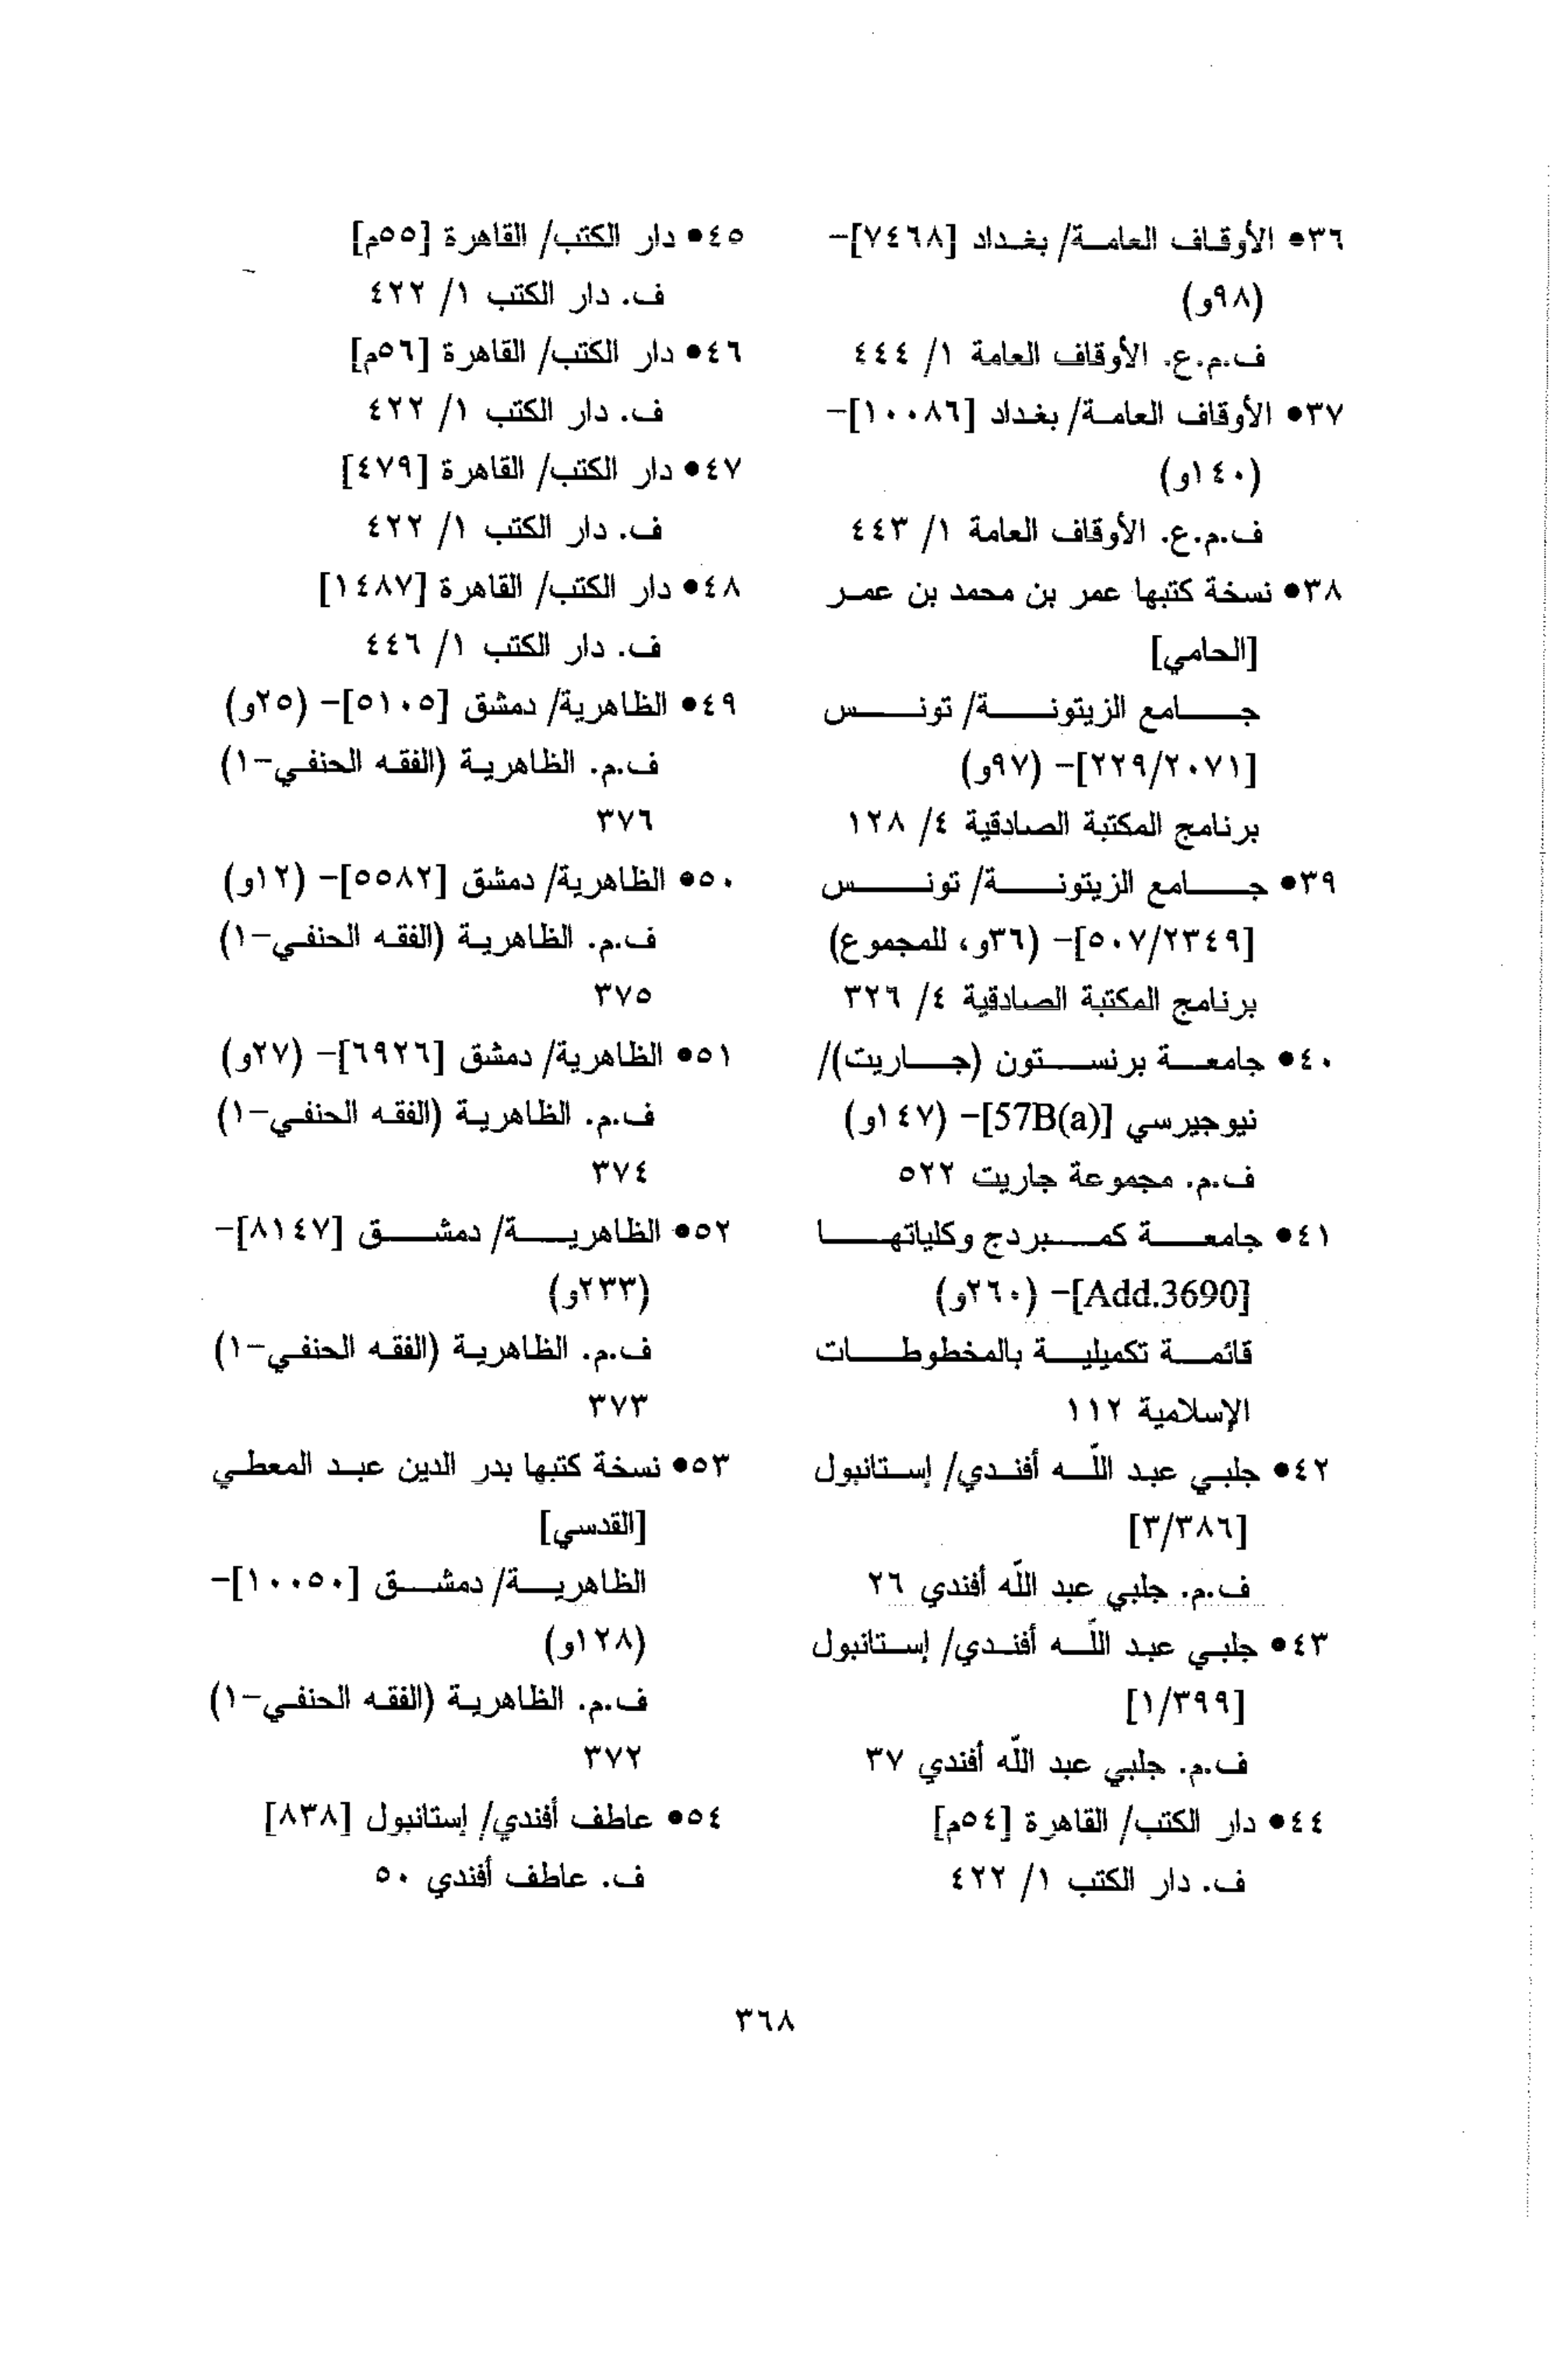 ٣٦• الأوقاف العامة/ بغداد [٧٤٦٨]-
(٩٨و)
ف.م.ع. الأوقاف العامة ١/ ٤٤٤
٣٧• الأوقاف العامة/ بغداد [١٠٠٨٦]-
(١٤٠و)
ف.م.ع. الأوقاف العامة ١/ ٤٤٣
٣٨• نسخة كتبها عمر بن محمد بن عمر
[الحامي]
جامع الزيتونة/ تونس
[٢٢٩/٢٠٧١]- (٩٧و)
برنامج المكتبة الصادقية ٤/ ١٢٨
٣٩• جامع الزيتونة/ تونس
[٥٠٧/٢٣٤٩]- (٣٦و، للمجموع)
برنامج المكتبة الصادقية ٤/ ٣٢٦
٤٠• جامعة برنستون (جاريت)/
نيوجيرسي [57B(a)]- (١٤٧و)
ف.م. مجموعة جاريت ٥٢٢
٤١• جامعة كمبردج وكلياتها
[Add.3690]- (٢٦٠و)
قائمة تكميلية بالمخطوطات
الإسلامية ١١٢
٤٢• جلبي عبد اللّه أفندي/ إستانبول
[٣/٣٨٦]
ف.م. جلبي عبد اللّه أفندي ٢٦
٤٣• جلبي عبد اللّه أفندي/ إستانبول
[١/٣٩٩]
ف.م. جلبي عبد اللّه أفندي ٣٧
٤٤• دار الكتب/ القاهرة [٥٤م]
ف. دار الكتب ١/ ٤٢٢
٤٥• دار الكتب/ القاهرة [٥٥م]
ف. دار الكتب ١/ ٤٢٢
٤٦• دار الكتب/ القاهرة [٥٦م]
ف. دار الكتب ١/ ٤٢٢
٤٧• دار الكتب/ القاهرة [٤٧٩]
ف. دار الكتب ١/ ٤٢٢
٤٨• دار الكتب/ القاهرة [١٤٨٧]
ف. دار الكتب ١/ ٤٤٦
٤٩• الظاهرية/ دمشق [٥١٠٥]- (٢٥و)
ف.م. الظاهرية (الفقه الحنفي-١)
٣٧٦
٥٠• الظاهرية/ دمشق [٥٥٨٢]- (١٢و)
ف.م. الظاهرية (الفقه الحنفي-١)
٣٧٥
٥١• الظاهرية/ دمشق [٦٩٢٦]- (٢٧و)
ف.م. الظاهرية (الفقه الحنفي-١)
٣٧٤
٥٢• الظاهرية/ دمشق [٨١٤٧]-
(٢٣٣و)
ف.م. الظاهرية (الفقه الحنفي-١)
٣٧٣
٥٣• نسخة كتبها بدر الدين عبد المعطي
[القدسي]
الظاهرية/ دمشق [١٠٠٥٠]-
(١٢٨و)
ف.م. الظاهرية (الفقه الحنفي-١)
٣٧٢
٥٤• عاطف أفندي/ إستانبول [٨٣٨]
ف. عاطف أفندي ٥٠
٣٦٨